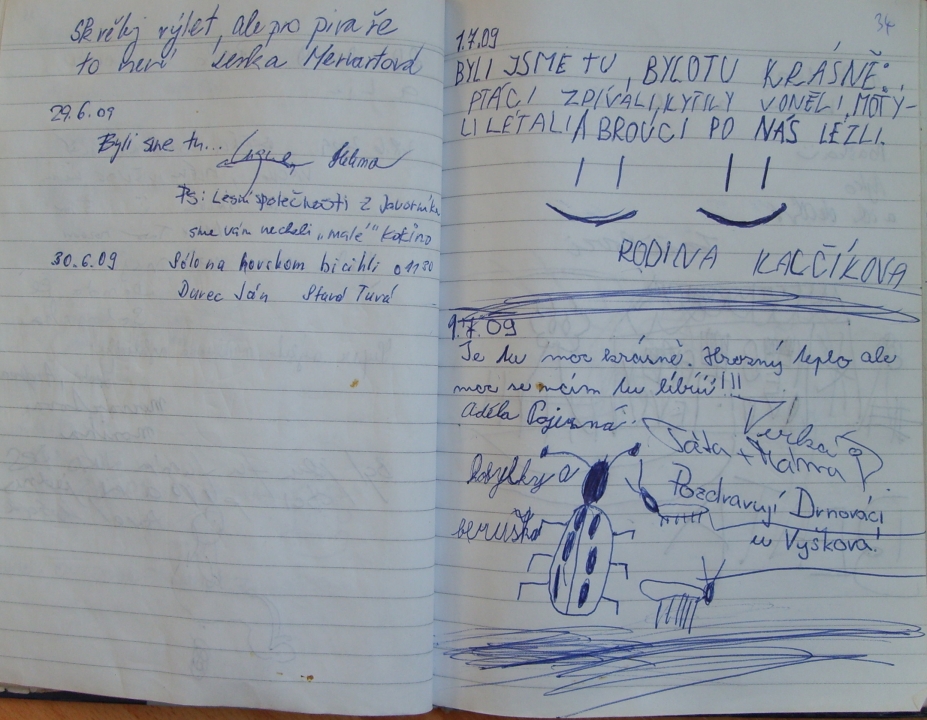 Skvělej výlet, ale pro pivaře
to není Lenka
29.6.09
Byli sme tu...
PS: Lesní společnosti z Javorníka
sme vám nechali „malé“
30.6.09 Sólo na horskom bicikli o 11 30
Durec Ján Stará Turá
34
1.7.09
BYLI JSME TU, BYLO TU KRÁSNĚ.
PTÁCI ZPÍVALI, KYTKY VONĚLI, MOTÝ-
LI LÉTALI A BROUCI PO NÁS LEZLI.
RODINA
9.7.09
Je tu moc krásně. Hrozný teplo ale
moc se nám tu líbíí!!!
Adéla
Verka
Táta + Máma
kobylky a
Pozdravují Drnováci
beruška
u Vyškova!